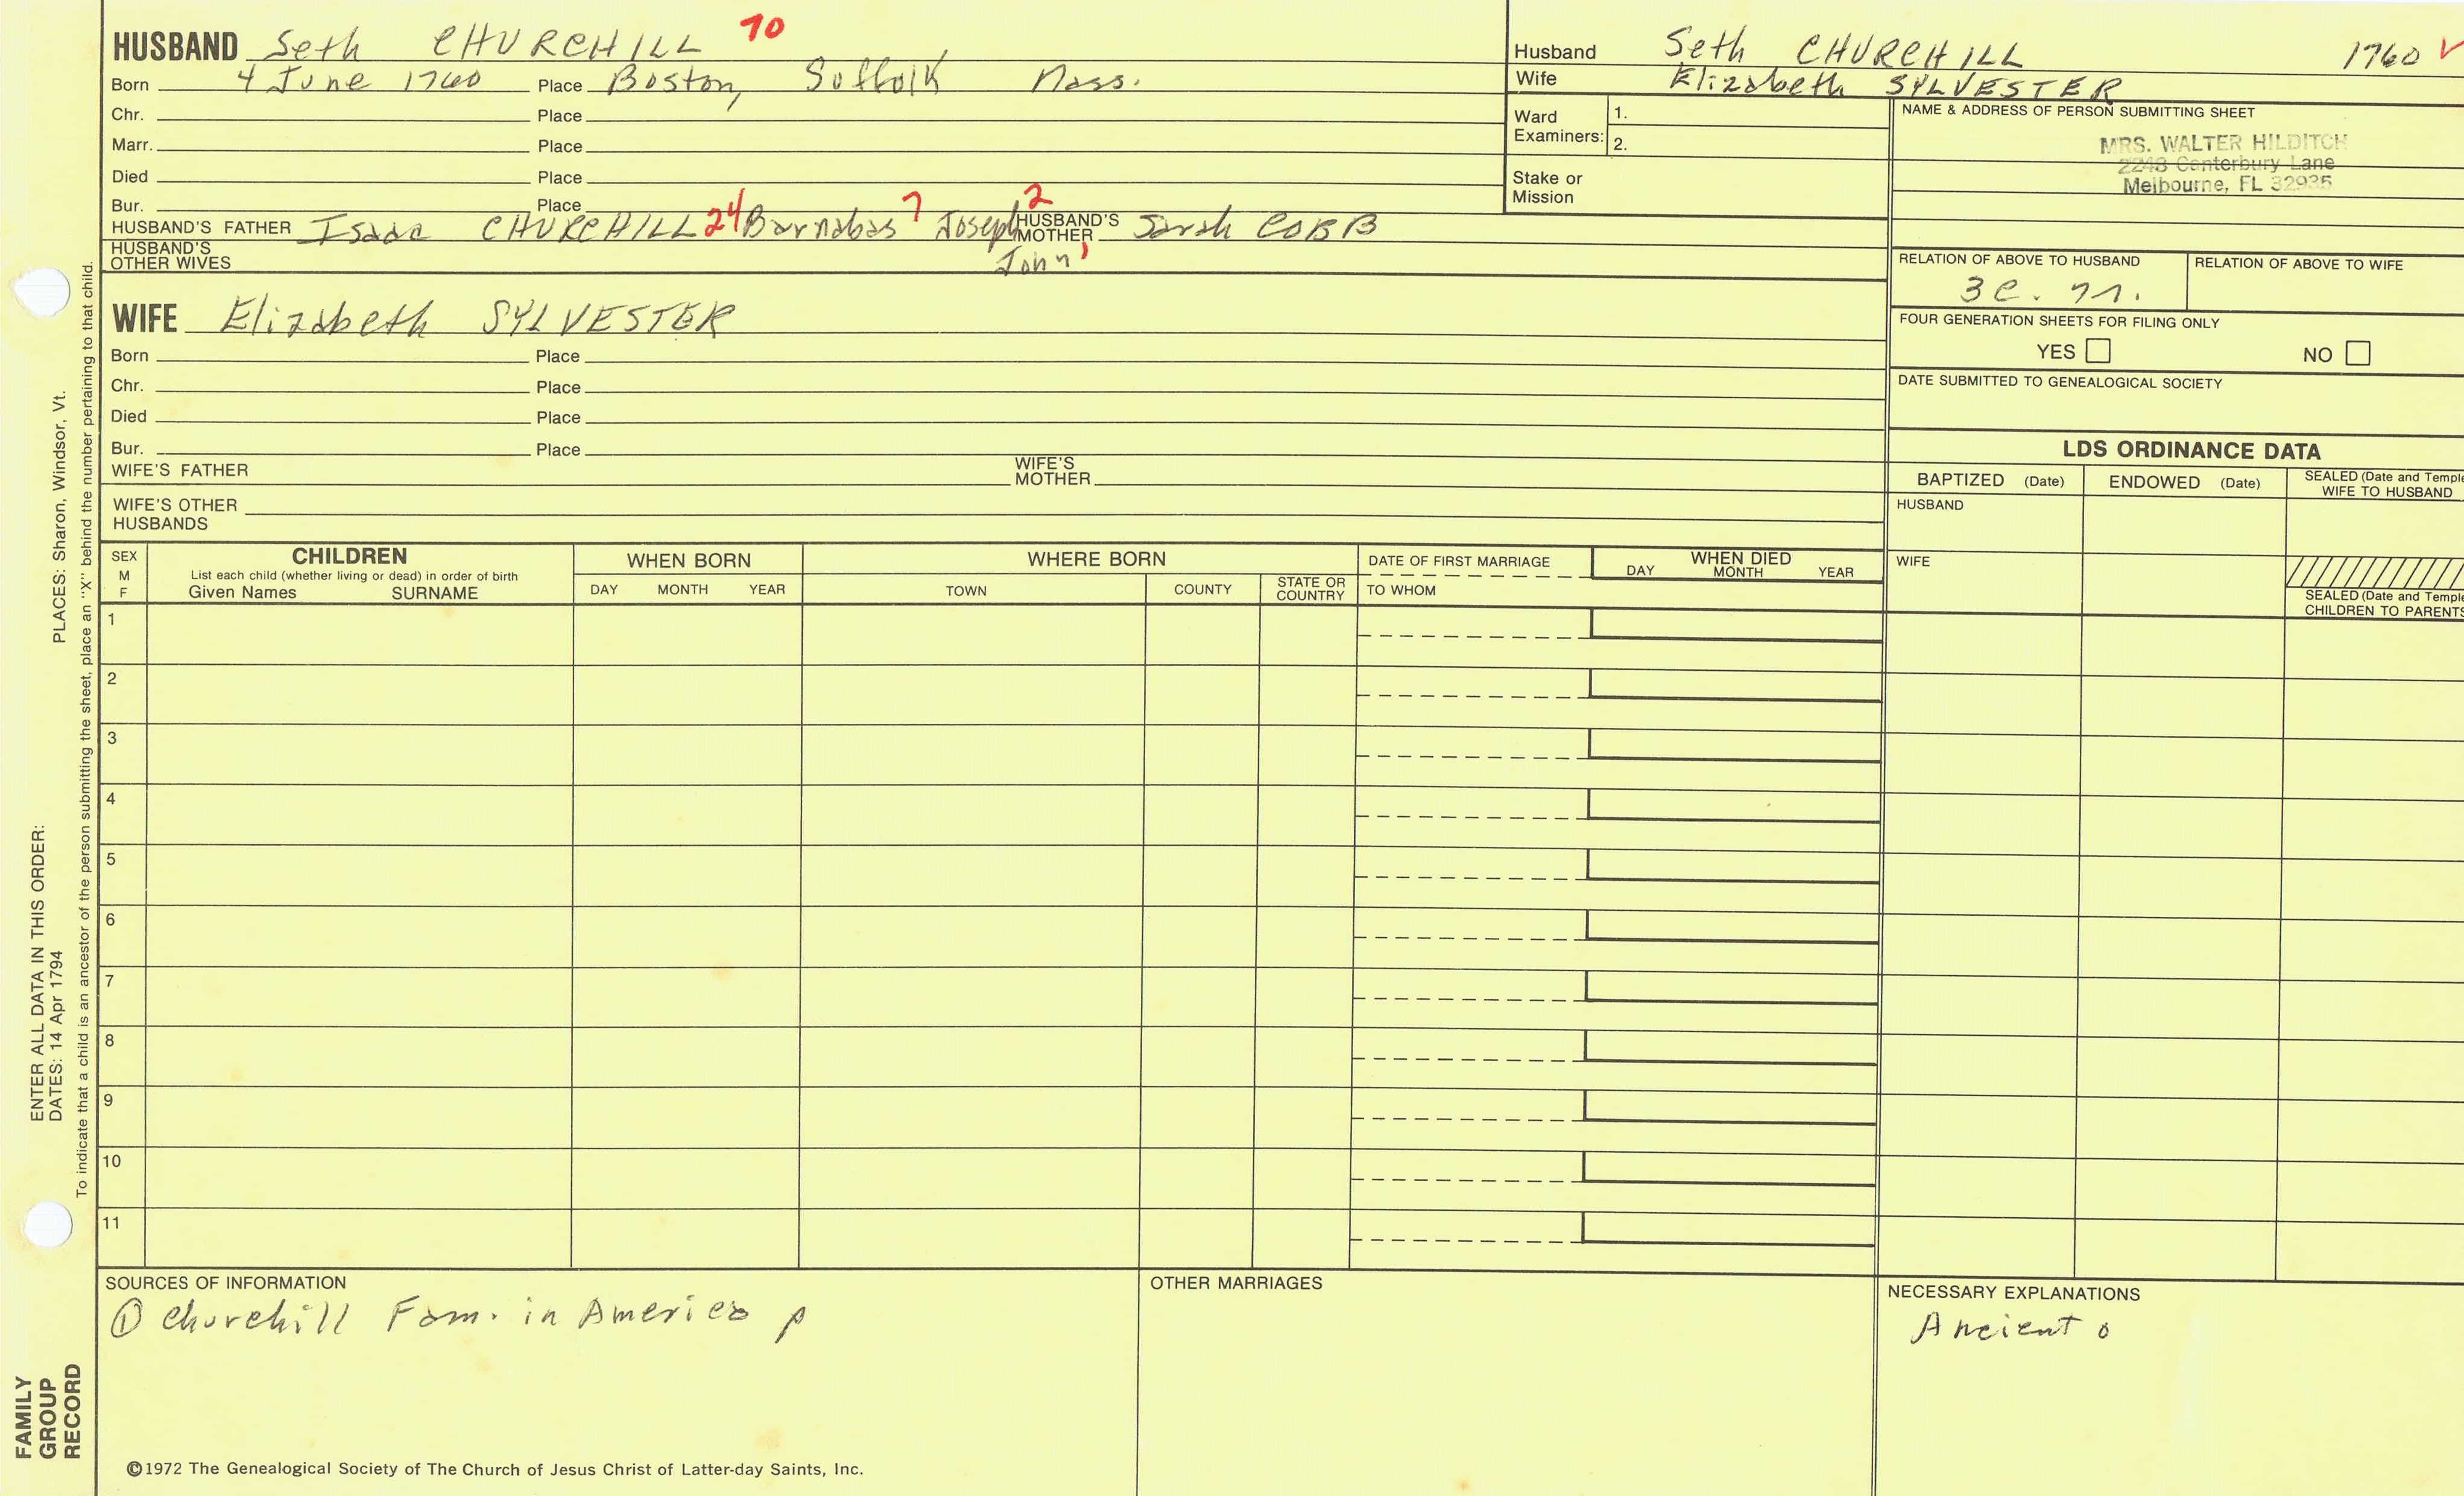 HUSBAND Seth CHURCHILL 70
Born 4 June 1760 Place Boston, Suffolk Mass.
Chr. Place
Marr. Place
Died Place
Bur. Place
HUSBAND'S FATHER Isaac CHURCHILL 24 Barnabas 7 Joseph 2 HUSBAND'S MOTHER Sarah COBB
John 1
HUSBAND'S OTHER WIVES
WIFE Elizabeth SYLVESTER
Born Place
Chr. Place
Died Place
Bur. Place
WIFE'S FATHER WIFE'S MOTHER
WIFE'S OTHER HUSBANDS
Husband Seth CHURCHILL 1760
Wife Elizabeth SYLVESTER
Ward Examiners: 1.
2.
Stake or Mission
NAME & ADDRESS OF PERSON SUBMITTING SHEET
MRS. WALTER HILDITCH
2243 Canterbury Lane
Melbourne, FL 32935
RELATION OF ABOVE TO HUSBAND RELATION OF ABOVE TO WIFE
3c. 7r.
FOUR GENERATION SHEETS FOR FILING ONLY
YES NO
DATE SUBMITTED TO GENEALOGICAL SOCIETY
LDS ORDINANCE DATA
BAPTIZED (Date) ENDOWED (Date) SEALED (Date and Temple
WIFE TO HUSBAND
HUSBAND
WIFE
SEALED (Date and Temple
CHILDREN TO PARENTS
SEX M F
CHILDREN
List each child (whether living or dead) in order of birth
Given Names SURNAME
WHEN BORN
DAY MONTH YEAR
WHERE BORN
TOWN COUNTY STATE OR COUNTRY
DATE OF FIRST MARRIAGE
TO WHOM
WHEN DIED
DAY MONTH YEAR
1
2
3
4
5
6
7
8
9
10
11
SOURCES OF INFORMATION
① Churchill Fam. in America p
OTHER MARRIAGES
NECESSARY EXPLANATIONS
Ancient o
©1972 The Genealogical Society of The Church of Jesus Christ of Latter-day Saints, Inc.
FAMILY
GROUP
RECORD
ENTER ALL DATA IN THIS ORDER:
DATES: 14 Apr 1794 PLACES: Sharon, Windsor, Vt.
To indicate that a child is an ancestor of the person submitting the sheet, place an "X" behind the number pertaining to that child.